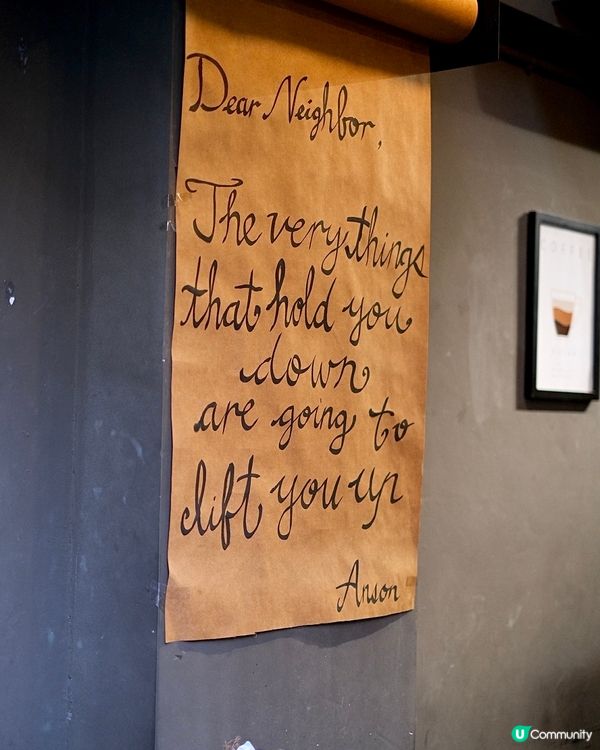 Dear Neighbor,
The very things
that hold you
down
are going to
lift you up
Anson
COFFEE
U Community